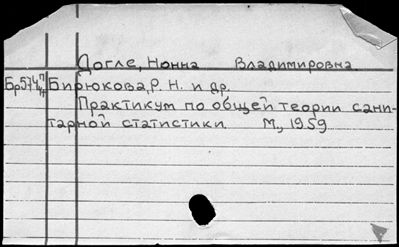 Догле, Нонна Владимировна
Бр574 Бирюкова, Р. Н. и др.
Практикум по общей теории сани-
тарной статистики. М., 1959